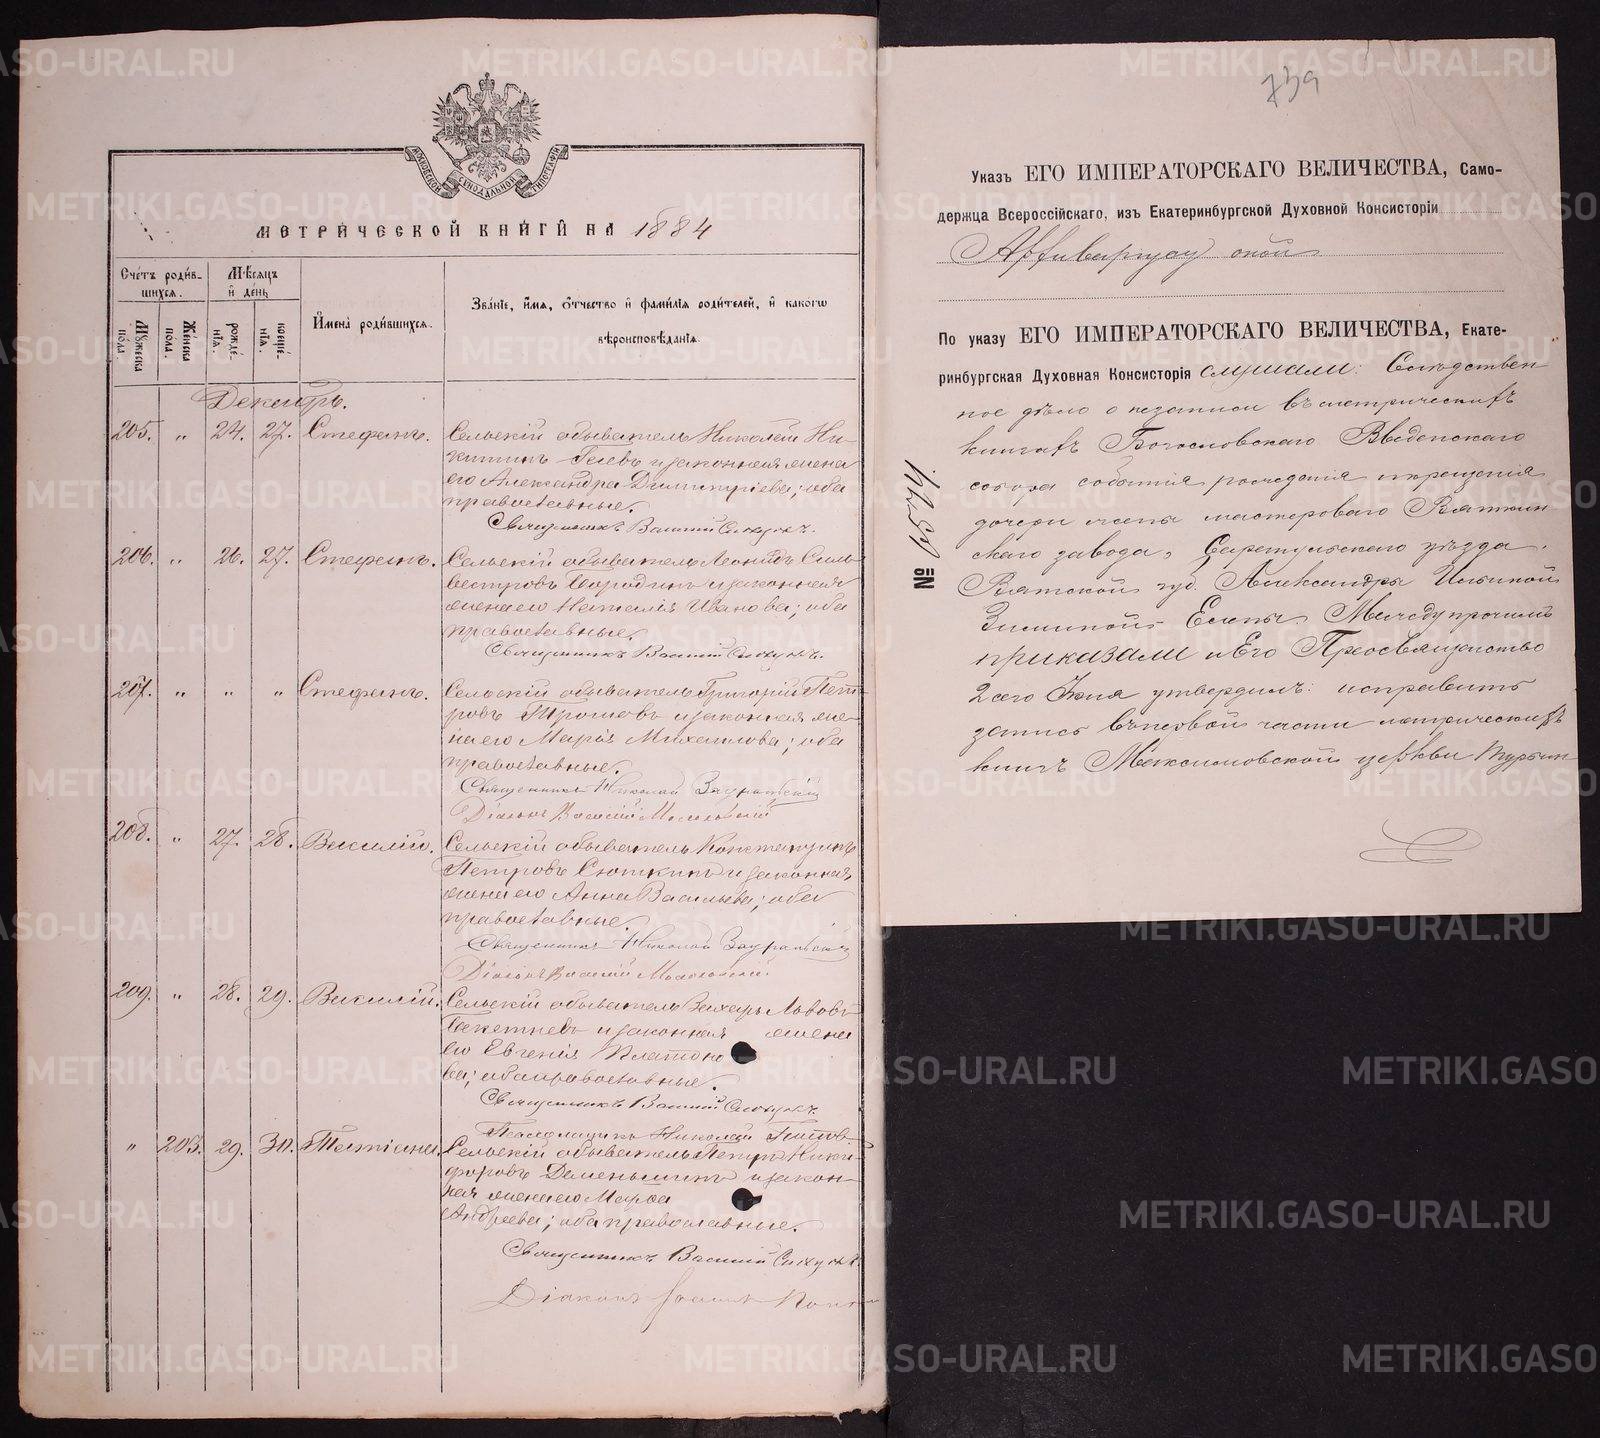 МОСКОВСКОЙ СѴНОДАЛЬНОЙ ТИПОГРАФІИ
МЕТРИЧЕСКОЙ КНИГИ НА 1884
Счетъ родив-
шихся.
Мѣсяцъ
и день
Мужеска
пола
Женска
пола.
рожде-
нія.
креще-
нія.
Имена родившихся.
Званіе, имя, отчество и фамилія родителей, и какого
вѣроисповѣданія.
Декабрь.
205. " 24. 27. Стефанъ. Сельскій обыватель Николай Ни-
китинъ и законная жена
его Александра Димитріева; оба
православные.
Священникъ Василій
206. " 26. 27. Стефанъ. Сельскій обыватель Леонидъ Силь-
вестровъ Бородинъ и законная
жена его Наталія Иванова; оба
православные.
Священникъ Василій
207. " " " Стефанъ. Сельскій обыватель Григорій Пет-
ровъ Трошовъ и законная же-
на его Марія Михаилова; оба
православные.
Священникъ Николай Зауральскій
Діаконъ Василій
208. " 27. 28. Василій. Сельскій обыватель Константинъ
Петровъ Сюткинъ и законная
жена его Анна Васильева; оба
православные.
Священникъ Николай Зауральскій
Діаконъ Василій
209. " 28. 29. Василій. Сельскій обыватель Захаръ Львовъ
и законная жена
его Евгенія Платоно
ва; оба православные.
Священникъ Василій
Псаломщикъ Николай
" 203. 29. 30. Татіана. Сельскій обыватель Петръ Ники-
форовъ Деменьшинъ и закон-
ная жена его Марѳа
Андреева; оба православные.
Священникъ Василій
Діаконъ
739
Указъ ЕГО ИМПЕРАТОРСКАГО ВЕЛИЧЕСТВА, Само-
держца Всероссійскаго, изъ Екатеринбургской Духовной Консисторіи
По указу ЕГО ИМПЕРАТОРСКАГО ВЕЛИЧЕСТВА, Екате-
ринбургская Духовная Консисторія слушали: Слѣдствен
ное дѣло о незаписи въ метрическихъ
книгахъ Богословскаго Введенскаго
собора событія рожденія и крещенія
дочери жены мастероваго Воткин
скаго завода, Сарапульскаго уѣзда,
Вятской губ. Александры Ильиной
Зиминой Елены. Между прочимъ
приказали и Его Преосвященство
2 сего Іюня утвердилъ: исправить
запись въ первой части метрическихъ
книгъ Максимовской церкви Турьин
№